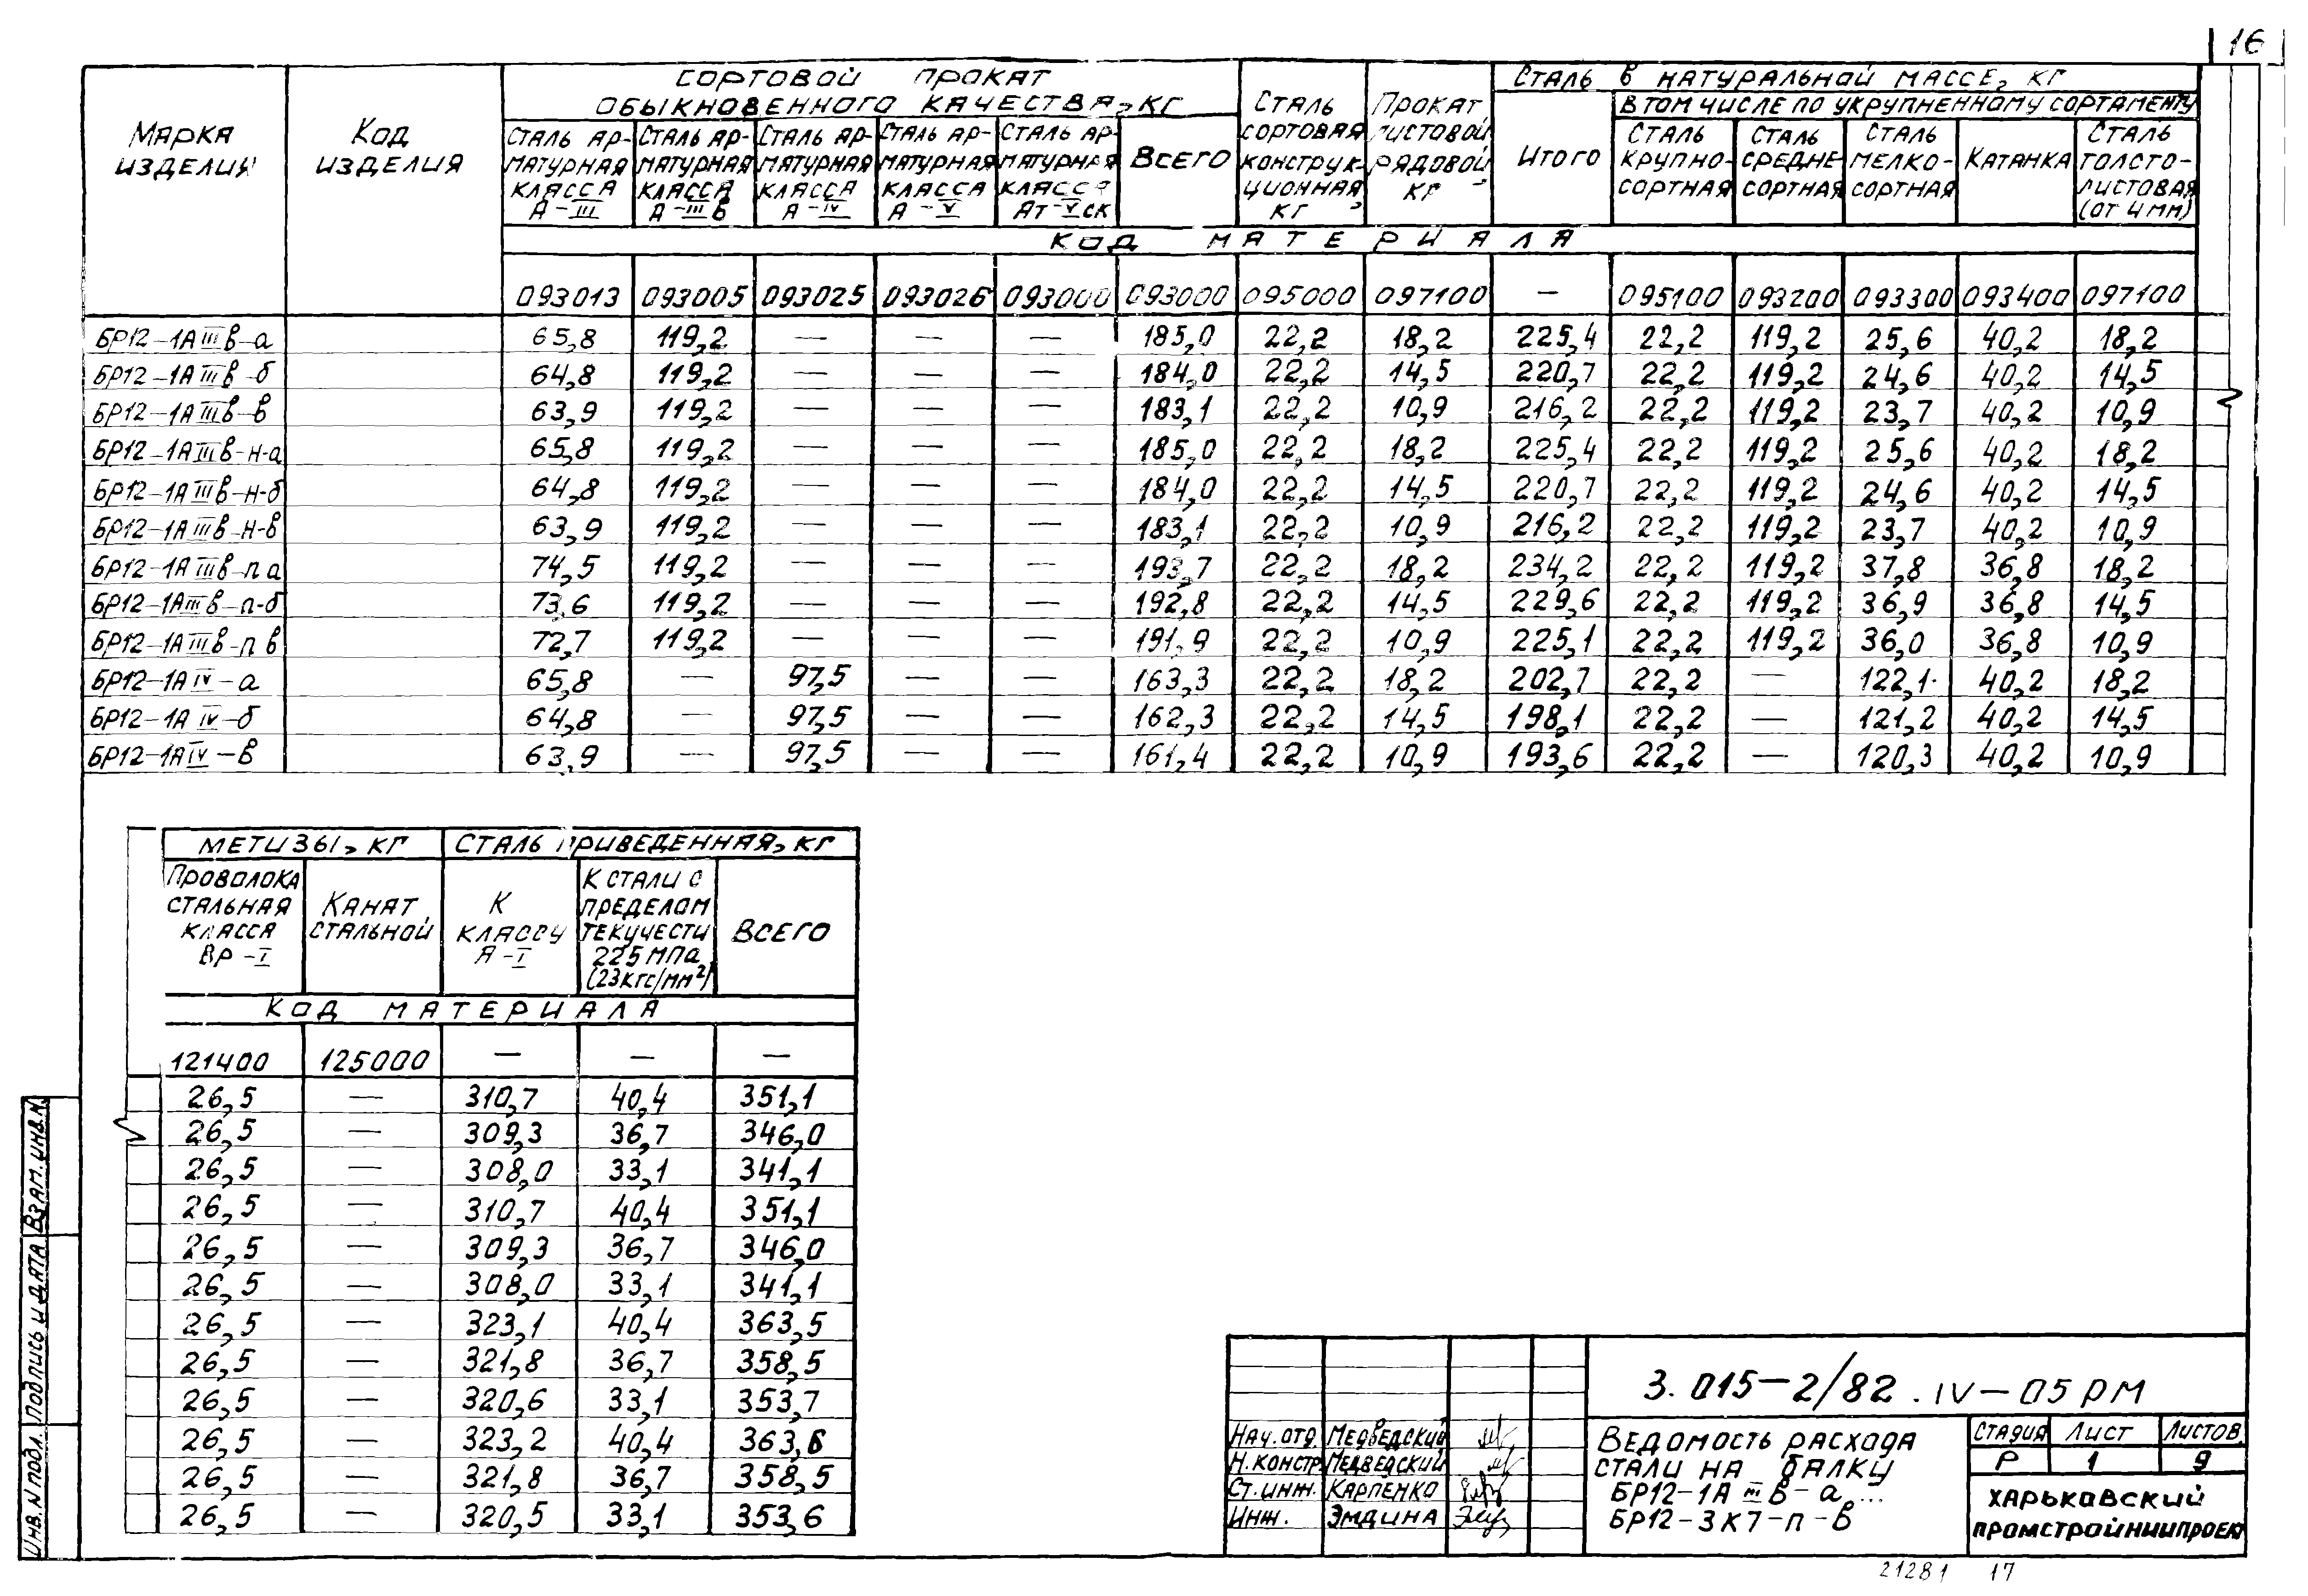 16
СОРТОВОЙ ПРОКАТ ОБЫКНОВЕННОГО КАЧЕСТВА, КГ
СТАЛЬ В НАТУРАЛЬНОЙ МАССЕ, КГ
В ТОМ ЧИСЛЕ ПО УКРУПНЕННОМУ СОРТАМЕНТУ
МАРКА ИЗДЕЛИЯ
КОД ИЗДЕЛИЯ
СТАЛЬ АР-МАТУРНАЯ КЛАССА А-III
СТАЛЬ АР-МАТУРНАЯ КЛАССА А-IIIВ
СТАЛЬ АР-МАТУРНАЯ КЛАССА А-IV
СТАЛЬ АР-МАТУРНАЯ КЛАССА А-V
СТАЛЬ АР-МАТУРНАЯ КЛАССА АТ-VСК
ВСЕГО
СТАЛЬ СОРТОВАЯ КОНСТРУК-ЦИОННАЯ, КГ
ПРОКАТ ЛИСТОВОЙ РЯДОВОЙ, КГ
ИТОГО
СТАЛЬ КРУПНО-СОРТНАЯ
СТАЛЬ СРЕДНЕ-СОРТНАЯ
СТАЛЬ МЕЛКО-СОРТНАЯ
КАТАНКА
СТАЛЬ ТОЛСТО-ЛИСТОВАЯ (ОТ 4 ММ)
КОД МАТЕРИАЛА
093013 093005 093025 093026 093000 093000 095000 097100 — 095100 093200 093300 093400 097100
БР12-1АIIIв-а 65,8 119,2 — — — 185,0 22,2 18,2 225,4 22,2 119,2 25,6 40,2 18,2
БР12-1АIIIв-б 64,8 119,2 — — — 184,0 22,2 14,5 220,7 22,2 119,2 24,6 40,2 14,5
БР12-1АIIIв-в 63,9 119,2 — — — 183,1 22,2 10,9 216,2 22,2 119,2 23,7 40,2 10,9
БР12-1АIIIв-н-а 65,8 119,2 — — — 185,0 22,2 18,2 225,4 22,2 119,2 25,6 40,2 18,2
БР12-1АIIIв-н-б 64,8 119,2 — — — 184,0 22,2 14,5 220,7 22,2 119,2 24,6 40,2 14,5
БР12-1АIIIв-н-в 63,9 119,2 — — — 183,1 22,2 10,9 216,2 22,2 119,2 23,7 40,2 10,9
БР12-1АIIIв-п а 74,5 119,2 — — — 193,7 22,2 18,2 234,2 22,2 119,2 37,8 36,8 18,2
БР12-1АIIIв-п-б 73,6 119,2 — — — 192,8 22,2 14,5 229,6 22,2 119,2 36,9 36,8 14,5
БР12-1АIIIв-п в 72,7 119,2 — — — 191,9 22,2 10,9 225,1 22,2 119,2 36,0 36,8 10,9
БР12-1АIV-а 65,8 — 97,5 — — 163,3 22,2 18,2 202,7 22,2 — 122,1 40,2 18,2
БР12-1АIV-б 64,8 — 97,5 — — 162,3 22,2 14,5 198,1 22,2 — 121,2 40,2 14,5
БР12-1АIV-в 63,9 — 97,5 — — 161,4 22,2 10,9 193,6 22,2 — 120,3 40,2 10,9
МЕТИЗЫ, КГ СТАЛЬ ПРИВЕДЕННАЯ, КГ
ПРОВОЛОКА СТАЛЬНАЯ КЛАССА ВР-I
КАНАТ СТАЛЬНОЙ
К КЛАССУ А-I
К СТАЛИ С ПРЕДЕЛОМ ТЕКУЧЕСТИ 225 МПа (23КГС/ММ²)
ВСЕГО
КОД МАТЕРИАЛА
121400 125000 — — —
26,5 — 310,7 40,4 351,1
26,5 — 309,3 36,7 346,0
26,5 — 308,0 33,1 341,1
26,5 — 310,7 40,4 351,1
26,5 — 309,3 36,7 346,0
26,5 — 308,0 33,1 341,1
26,5 — 323,1 40,4 363,5
26,5 — 321,8 36,7 358,5
26,5 — 320,6 33,1 353,7
26,5 — 323,2 40,4 363,6
26,5 — 321,8 36,7 358,5
26,5 — 320,5 33,1 353,6
ИНВ.N ПОДЛ. ПОДПИСЬ И ДАТА ВЗАМ.ИНВ.N
3.015-2/82.IV-05РМ
НАЧ.ОТД. МЕДВЕДСКИЙ
Н.КОНСТР. МЕДВЕДСКИЙ
СТ.ИНЖ. КАРПЕНКО
ИНЖ. ЭМДИНА
ВЕДОМОСТЬ РАСХОДА
СТАЛИ НА БАЛКУ
БР12-1АIIIв-а...
БР12-3К7-п-в
СТАДИЯ ЛИСТ ЛИСТОВ
Р 1 9
ХАРЬКОВСКИЙ
ПРОМСТРОЙНИИПРОЕКТ
21281 17